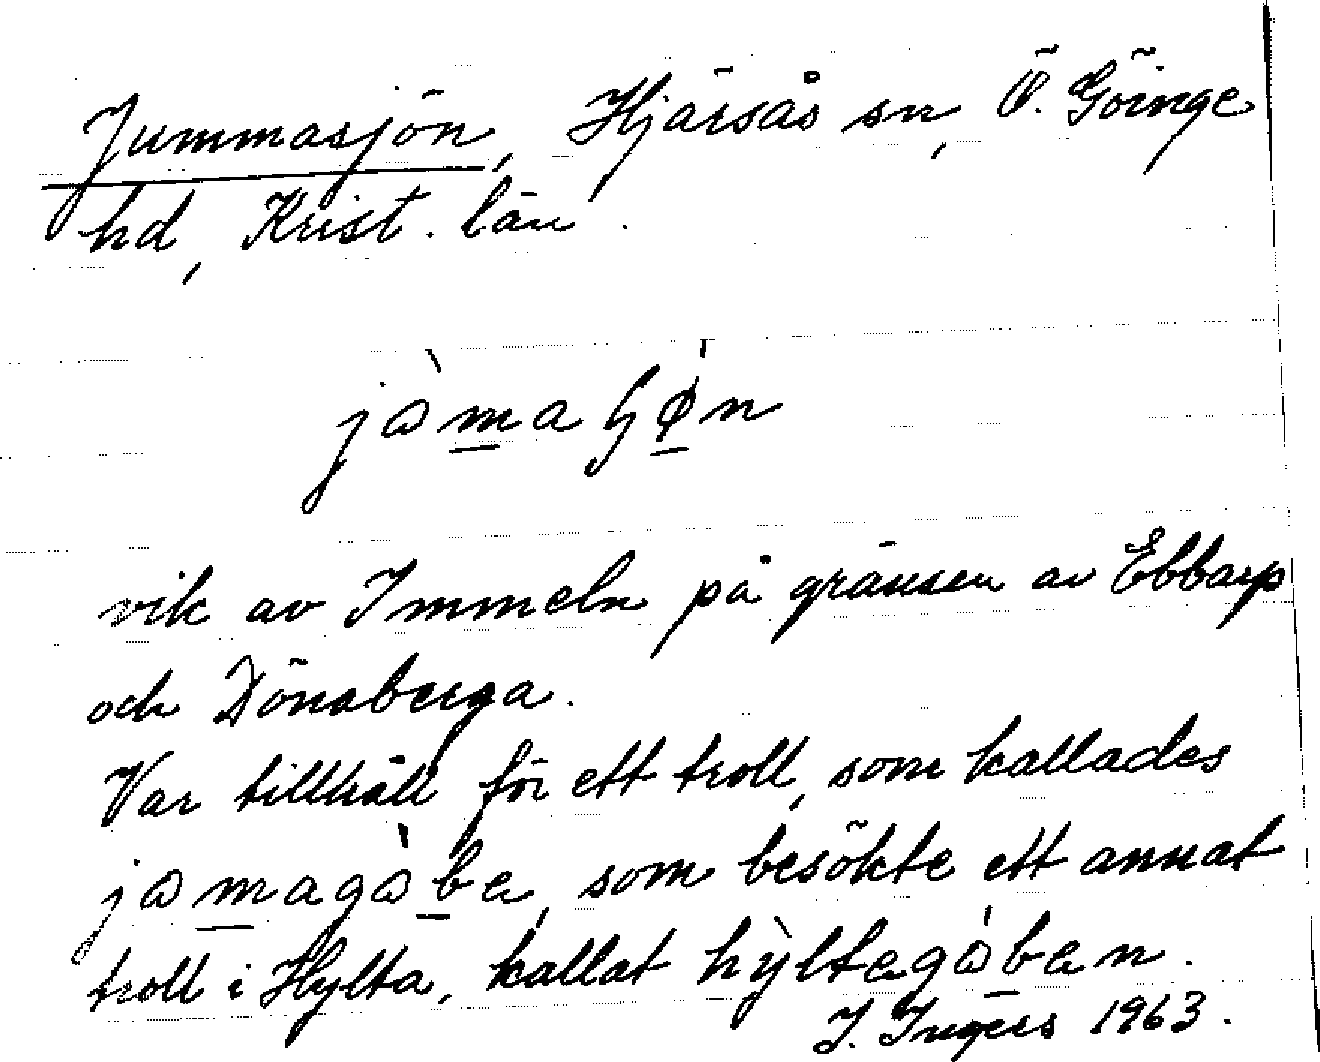 Jummasjön, Hjärsås sn, Ö. Göinge
hd, Krist. län.
vik av Immeln på gränsen av Ebbarp
och Dönaberga.
Var tillhåll för ett troll, som kallades
jamagàbe, som besökte ett annat
troll i Hylta, kallat hỳltegàben.
I. Ingers 1963.